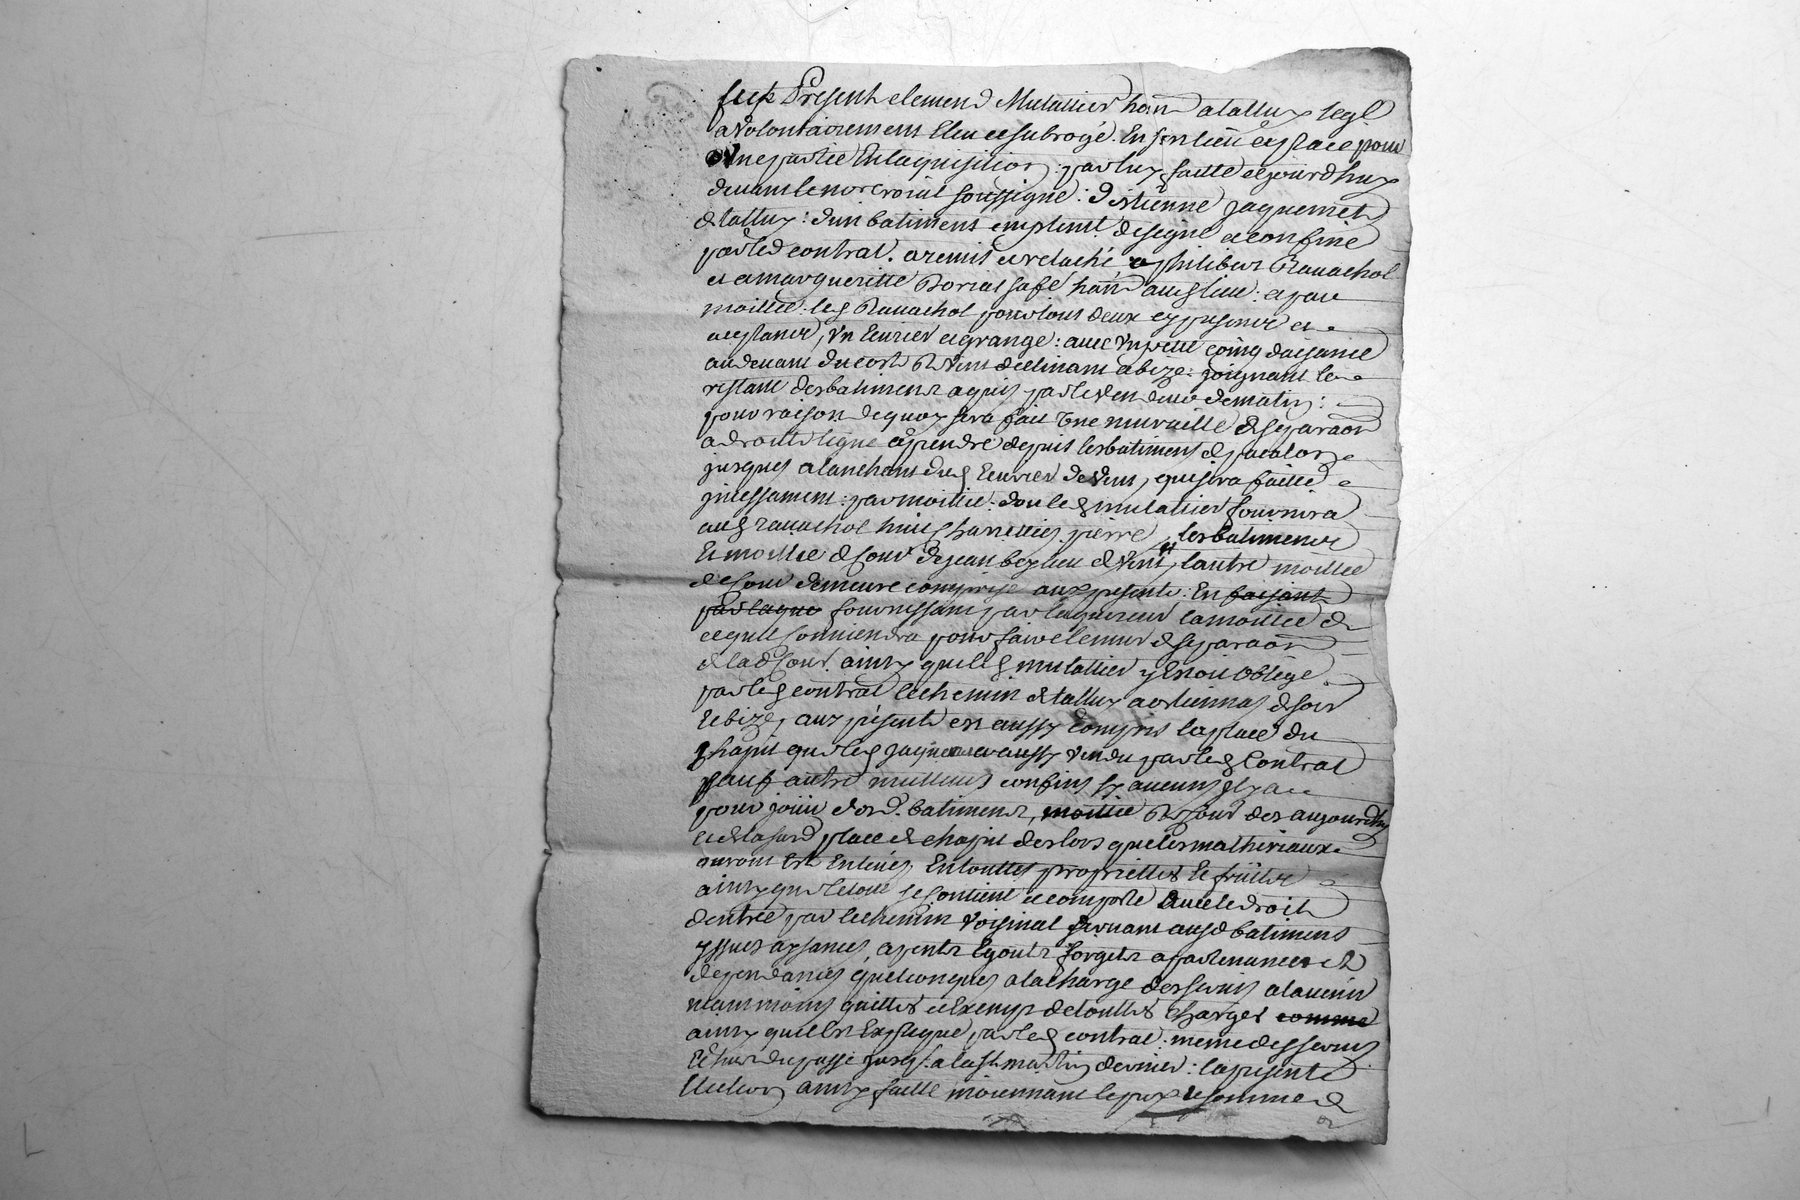 fust Present clement Mulattier hant a tallux legl
a volontairement Eleu et subrogé En son lieu et place pour
Une partie En laquisition par luy faitte cejourdhuy
devant le no.re roial soussigné : d'estienne jaquemet
de tallux : d'un batiment en plus designé et confiné
par led contrat . a remis et relaché a philibert Ravachol
et a margueritte sa fe hant aud lieu : et par
moitié : led Ravachol pour tous deux cy present et
aceptant , Un Ecurier et grange : avec Un petit coing daisance
au devant du coste de Vent declinant a bize : joignant le
restant des batiments aquis par le Vendeur de matin :
pour raison de quoy sera fait Une muraille de separaon
a droitte ligne a prendre depuis les batiments de
jusques a lanchant dud Ecurier de Vent , qui sera faitte
incessament : par moitié . dou led mulattier fournira
aud ravachol huit charettées pierre , les batiments
Et moitié de cour de jean de Vent , lautre moitié
de cour demeure comprise aux presents : En faisant
par laque fournissant par laquereur la moitié de
ce quil conviendra pour faire le mur de separaon
de lad cour . ainsy que led mulattier y Estoit Oblegé
par led contrat le chemin de tallux a de soir
Et bize , aux presents est aussy compris la place du
chapit que led jaquemet a aussy vendu par led Contrat
sauf autre meilleurs confins sy aucuns il y a
pour jouir desd. batiments , moitié de cour des aujourdhuy
et de la susd place de chapit des lors que les matheriaux
auront Esté Enlevés , En touttes proprietté Et fruitte
ainsy que le tout se contient et comporte Avec le droit
dentrée par le chemin Voisinal servant ausd batiments
yssues aysances , apents Egouts forgets apartenances et
dependances quelconques a la charge des servis a lavenir
neanmoins quitte et Exempt de touttes charges comme
ainsy quil Est Expliqué par led contrat : meme des servis
Et du passé jusq. a la st martin dernier : la presente
Election ainsy faitte moiennant le prix et somme de